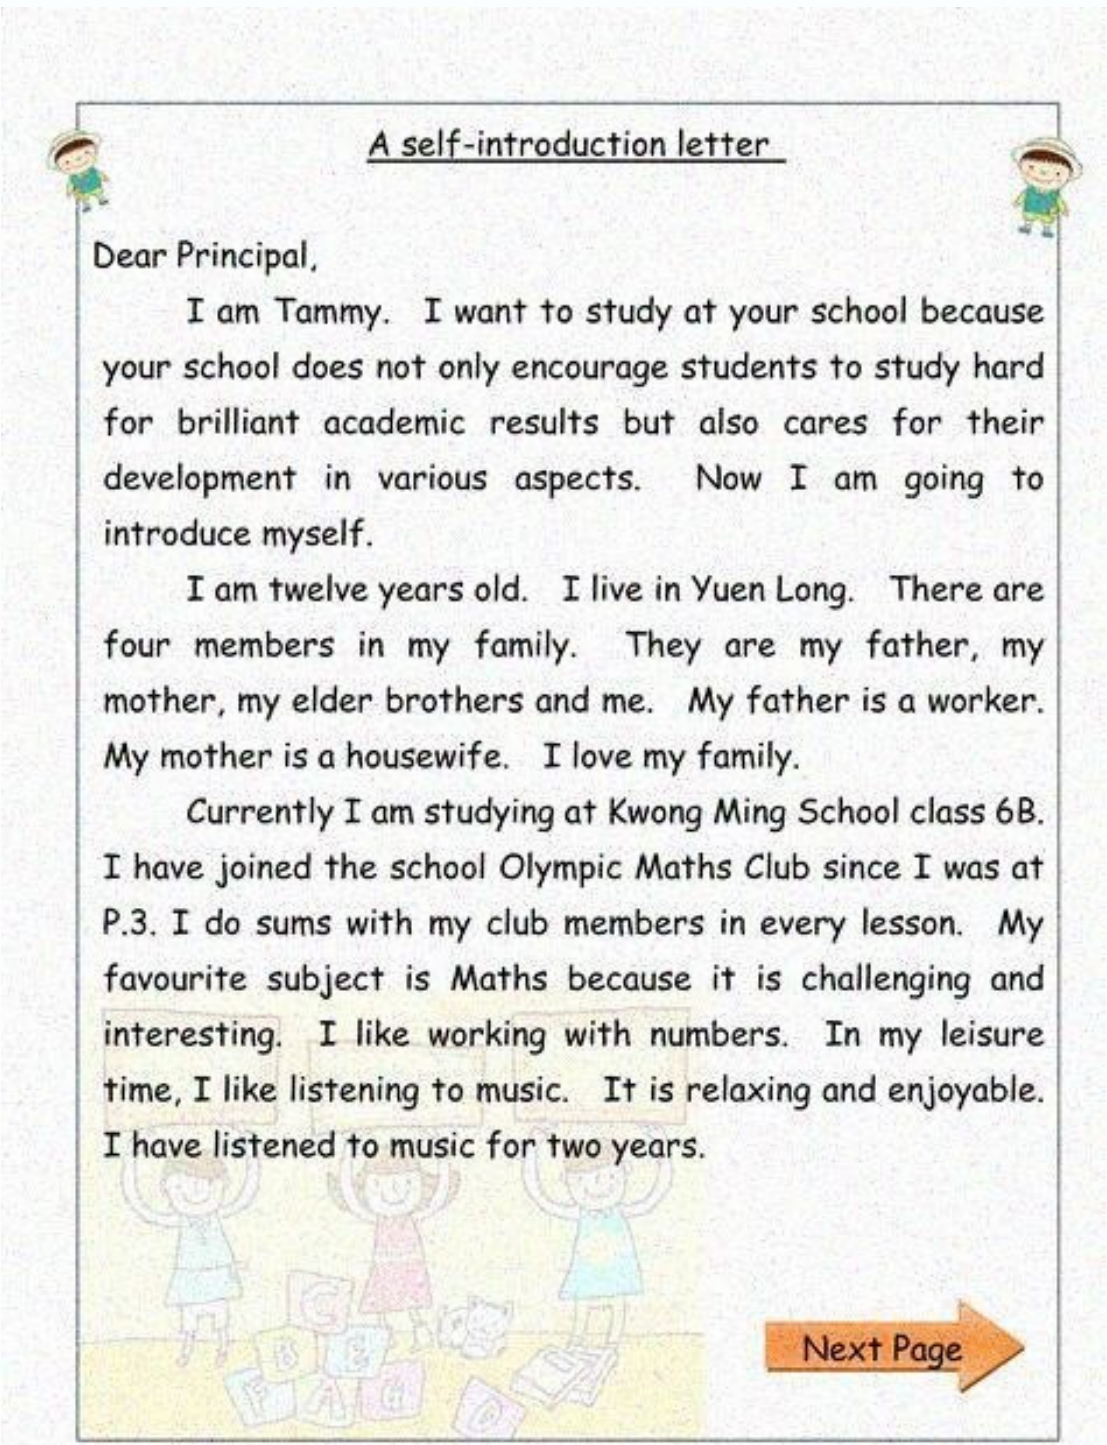 A self-introduction letter
Dear Principal,
I am Tammy. I want to study at your school because
your school does not only encourage students to study hard
for brilliant academic results but also cares for their
development in various aspects. Now I am going to
introduce myself.
I am twelve years old. I live in Yuen Long. There are
four members in my family. They are my father, my
mother, my elder brothers and me. My father is a worker.
My mother is a housewife. I love my family.
Currently I am studying at Kwong Ming School class 6B.
I have joined the school Olympic Maths Club since I was at
P.3. I do sums with my club members in every lesson. My
favourite subject is Maths because it is challenging and
interesting. I like working with numbers. In my leisure
time, I like listening to music. It is relaxing and enjoyable.
I have listened to music for two years.
C
B E
F A G
Next Page